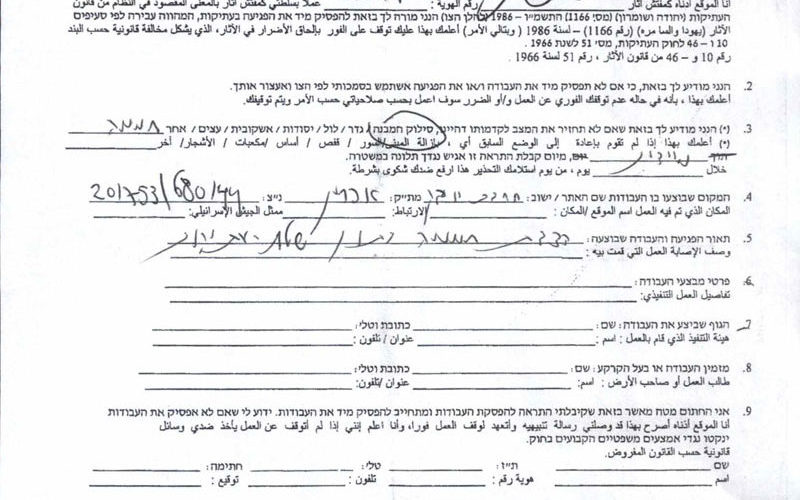 אני הממונה אדנאה כמפקח אתיקות
אנا الموقع ادناه كمفتش اثار
מספר הזהות:
رقم الهوية :
عملا بسلطتي كمفتش اثار بالمعنى المقصود في النظام من قانون
העתיקות (יהודה ושומרון) (מס' 1166) התשמ"ו - 1986 (להלן הצו) הנני מורה לך בזאת להפסיק מיד את הפגיעה בעתיקות, המהווה עבירה לפי סעיפים
الآثار (يهودا والسامره) (رقم 1166) – لسنة 1986 ( وبتالي الأمر) أعلمك بهذا عليك توقف على الفور بإلحاق الأضرار في الآثار، الذي يشكل مخالفة قانونية حسب البند
10 ו - 46 לחוק העתיקות, מס' 51 לשנת 1966.
رقم 10 و – 46 من قانون الآثار ، رقم 51 لسنة 1966.
2. הנני מודיע לך בזאת, כי אם לא תפסיק מיד את העבודה ו/או את הפגיעה אשתמש בסמכותי לפי הצו ואעצור אותך.
أعلمك بهذا ، بأنه في حاله عدم توقفك الفوري عن العمل و/أو الضرر سوف اعمل بحسب صلاحياتي حسب الأمر ويتم توقيفك.
3. (*) הנני מודיע לך בזאת שאם לא תחזיר את המצב לקדמותו דהיינו, סילוק המבנה / גדר / לול / יסודות / אשקובית / עצים / אחר חממה
(*) أعلمك بهذا إذا لم تقوم بإعادة إلى الوضع السابق أي ، بإزالة المبنى/السور / قفص / أساس /مكعبات / الأشجار/ أخر
תוך מיידי ימים, מיום קבלת התראה זו אגיש נגדך תלונה במשטרה.
خلال يوم ، من يوم استلامك التحذير هذا ارفع ضدك شكوى بشرطة.
4. המקום שבוצעו בו העבודות שם האתר / ישוב: מתי"ק: נ"צ: 201753/680144
المكان الذي تم فيه العمل اسم الموقع /المكان: الارتباط: ممثل الجيش الإسرائيلي:
5. תאור הפגיעה והעבודה שבוצעה: הצבת חממה
وصف الإصابة العمل التي قمت بيه :
6. פרטי מבצעי העבודה:
تفاصيل العمل التنفيذي:
7. הגוף שביצע את העבודה: שם: כתובת וטלי:
هيئة التنفيذ الذي قام بالعمل : اسم : عنوان / تلفون :
8. מזמין העבודה או בעל הקרקע: שם: כתובת וטלי:
طالب العمل أو صاحب الأرض : اسم: عنوان /تلفون:
9. אני החתום מטה מאשר בזאת שקיבלתי התראה להפסקת העבודות ומתחייב להפסיק מיד את העבודות. ידוע לי שאם לא אפסיק את העבודות
أنا الموقع أدناه أصرح بهذا قد وصلتني رسالة تنبيهيه وأتعهد لوقف العمل فورا، وأنا اعلم إنني إذا لم أتوقف عن العمل يأخذ ضدي وسائل
ינקטו נגדי אמצעים משפטיים הקבועים בחוק.
قانونية حسب القانون المفروض.
שם: ת"ז: טלי: חתימה:
اسم هوية رقم : تلفون : توقيع :